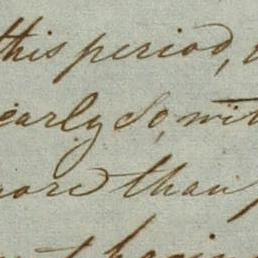 this period,
early So, with
more than